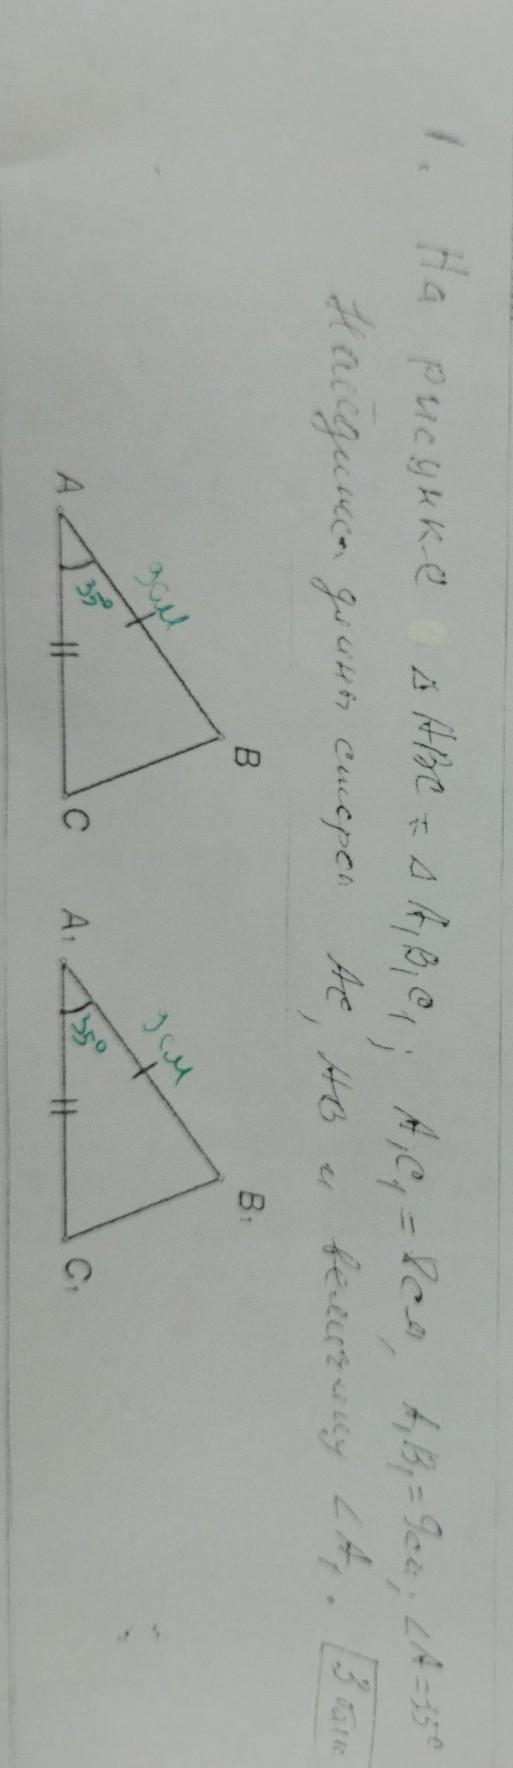 1. На рисунке Δ ABC = Δ A₁B₁C₁; A₁C₁ = 8см, A₁B₁ = 9см, ∠A = 35°
Найдите длины сторон AC, AB и величину ∠A₁. 3 бал
B B₁
9см 9см
35° 35°
A C A₁ C₁